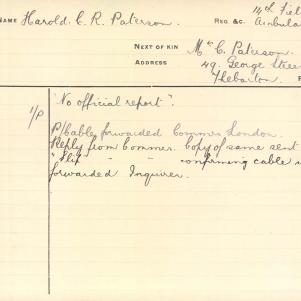 NAME Harold. C. R. Paterson. REG &c. 14th Fiel
Ambula
NEXT OF KIN Mrs C. Paterson.
ADDRESS 49. George Stree
Thebarton.
"No official report".
P/Cable forwarded Commrs London.
Reply from Commr. Copy of same sent
"Slip" " " confirming cable
forwarded Inquirer.